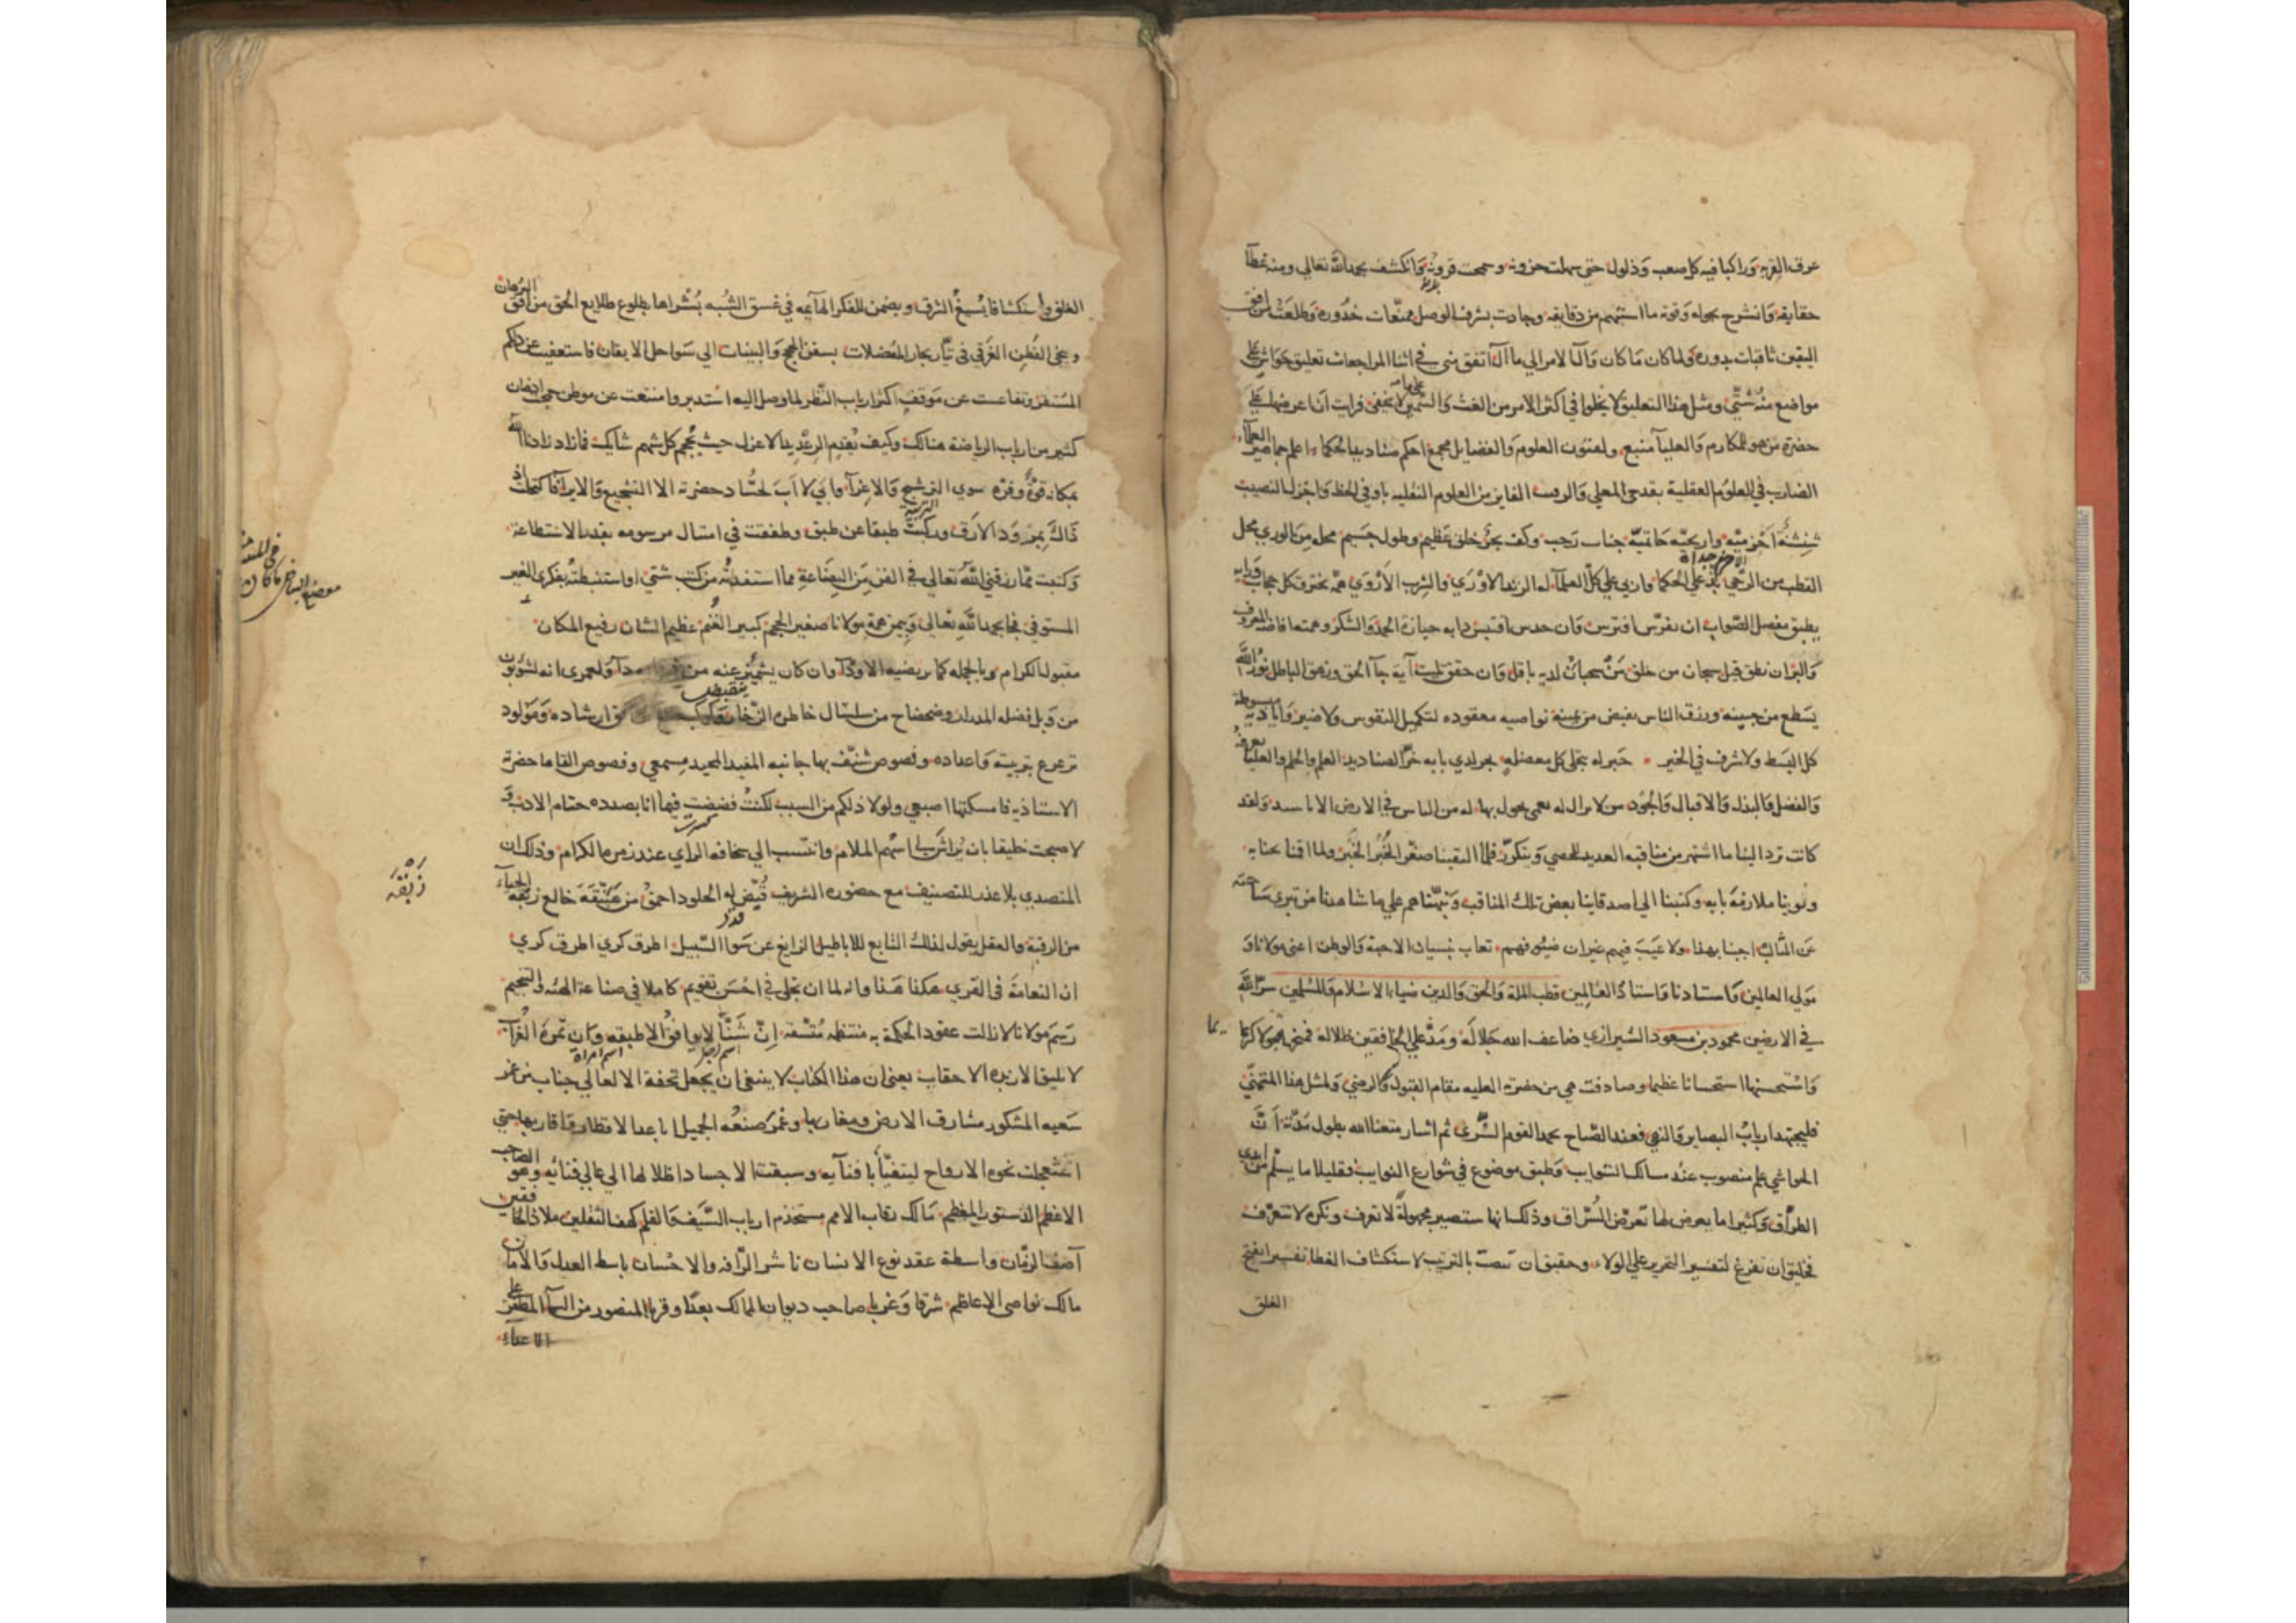 عرق القربة وراكبا فيه كل صعب وذلول حتى سهلت حزونه وسمحت قرونه وانكشف بحمد الله تعالى ومنه غطآ
حقايقه وانشرح بحوله وقوته ما استبهم من دقايقه وجادت بشرف الوصل ممنعات خدوره وطلعت من افق
اليقين ثاقبات بدوره ولما كان ما كان وآل الامر الي ما آل اتفق مني في اثنا المراجعات تعليق حواش على
مواضع منه شتي ومثل هذا التعليق لا يخلوا في اكثر الامر من الغث والسمين لا يخفى فرايت ان اعرضها على
حضرة من هو للمكارم والعليآ منبع ولفنون العلوم والفضايل مجمع احكم صناديد الحكماء اعلم جماهير العلماء
الضارب في العلوم العقلية بقدحي المعلي والرقيب الفايز من العلوم النقليه باوفي الحظ واجزل النصيب
شنشنة اخزميه واريحيه حاتميه جناب رحب وكف بحر خلق عظيم وطول جسيم محله من الوري محل
القطب من الرحي بذ علي الحكما واربي علي كل العلمآ له الزند الاوري والشرب الأروي همه تخترق كل حجاب ورايه
يطبق مفصل الصواب ان تفرس افترس وان حدس اقتبس دابه حيازة الحمد والشكر وهمته افاضة العرف
والبر ان نطق قيل سبحان من خلق من سحبان لديه باقل وان حقق تليت آية جآ الحق وزهق الباطل نور الله
يسطع من جبينه ورزق الناس يفيض من يمينه نواصيه معقوده لتكميل النفوس ولا ضير واياديه مبسوطة
كل البسط ولا سرف في الخير حبر له تجلى كل معضله بحر لدي بابه خر الصناديد العلم والحلم والعليا
والفضل والبذل والاقبال والجود من لا يزال له نعمى يحول بها له من الناس في الارض الاناسيد ولقد
كانت ترد الينا ما اشتهر من مناقبه العديد الحصي ويتكرر فلما التقينا صغر الخبر الخبر ولما اقمنا بجنابه
ونوينا ملازمة بابه وكتبنا الى اصدقاينا بعض تلك المناقب ونبهناهم علي ما شاهدنا من تبري ساحته
عن المثالب اجبنا بهذا ولا عيب فيهم غير ان ضيوفهم تعاب بنسيان الاحبة والوطن اعني مولانا و
مولى العالمين واستادنا واستاذ العالمين قطب الملة والحق والدين ضياء الاسلام والمسلمين سر الله
في الارضين محمود بن مسعود الشيرازي ضاعف الله جلاله ومد علي الخافقين ظلاله
واستحسنها استحسانا عظيما وصادفت هي من حضرته العليه مقام القبول والرضي ولمثل هذا المتمني
فليجتهد ارباب البصاير والنهي فعند الصباح يحمد القوم السرى ثم اشار متعنا الله بطول مدته ان
الحواشي علم منصوب عند مسالك الشوايب وطبق موضوع في شوارع النوايب فقليلا ما يسلم من ايدي
الطراق وكثيرا ما يعرض لها تعرض السراق وذلك انها ستصير مجهولة لا تعرف ونكره لا تتعرف
فخليق ان تفرغ لتفسير التحرير علي الولاء وحقيق ان تنصت بالترتيب لاستكشاف الغطا تفسيرا يفتح
الغلق
الغلق واستكشافا يسيغ الشرق ويضمن للفكر الهايمه في غسق الشبه بشراها بطلوع طلايع الحق من افق البرهان
وينجى الفطن الغرقى في تيار بحار المعضلات بسفن الحجج والبينات الي سواحل الايقان فاستعفيت عن ذلكم
المستفز وتقاعست عن موقف اكثر ارباب النظر لما وصل اليه استدبر وامتنعت عن موطن
كثير من ارباب الرياضة هنالك وكيف يقدم الرعديد الاعزل حيث يحجم كل شهم شايك فازاد زادنا الله
بمكانه قوة وقره سوي الترشيح والاغرآ وابي لا اب لحساد حضرته الا التشجيع والايرا فاكتحلت اذ
ذاك بمرود الارق وركبت طبقا عن طبق وطفقت في امتثال مرسومه بقدر الاستطاعة
وكتبت مما رزقني الله تعالى في الفن من البضاعة مما استفدته من كتب شتي او استنبطته بفكري الغير
المستوفي فجا بحمد الله تعالى وبيمن همة مولانا صغير الحجم كبير الغنم عظيم الشان رفيع المكان
مقبول الكرام وبالجمله كما يرتضيه الاودآ وان كان يشمئز عنه من ولعمري انه لشؤبوب
من وبل فضله المدرار وضحضاح من سلسال خاطره الزخار وكوكب ارشاده ومولود
ترعرع بتربيته واعداده وفصوص شنف بها جانبه المفيد المجيد مسمعي وفصوص القاها حضرة
الاستاذيه فامسكتها اصبعي ولولا ذلكم من السبب لكنت فضضت فيما انا بصدده ختام الادب و
لاصبحت خليقا بان تراش لى اسهم الملام وانتسب الي سخافة الراي عند زمرة الكرام وذلك ان
المتصدي بلا عذر للتصنيف مع حضوره الشريف قيض له الحلود احمق من هبنقة خالع ربقة الحياء
من الرقبة والعقل يقول لذلك التابع للاباطيل الزايغ عن سوا السبيل اطرق كري اطرق كري
ان النعامة في القري هكذا هذا وانه لما ان تجلى في احسن تقويم كاملا في صناعة الهيئه والتنجيم
رسم مولانا لا زالت عقود الحكمة به منتظمه متسقه ان شنا لا يوافق الا طبقه وان تمرة الغراب
لا يليق الا بزبرة الاحقاب يعنى ان هذا الكتاب لا ينبغي ان يجعل تحفة الا لعالي جناب من عم
سعيه المشكور مشارق الارض ومغاربها وغمر صنعه الجميل اباعد الاقطار واقاربها حتى
استعجلت نحوه الارواح ليتفيأ بافنآيه وسبقت الاجساد اظلالها الي عالي فنائه وهو الصاحب
الاعظم الدستور المعظم مالك رقاب الامم مستخدم ارباب السيف والقلم كهف الثقلين ملاذ الخافقين
آصف الزمان واسطة عقد نوع الانسان ناشر الرافه والاحسان باسط العدل والامان
مالك نواصى الاعاظم شرقا وغربا صاحب ديوان الممالك بعدا وقربا المنصور من السمآ المظفر على
الاعداء